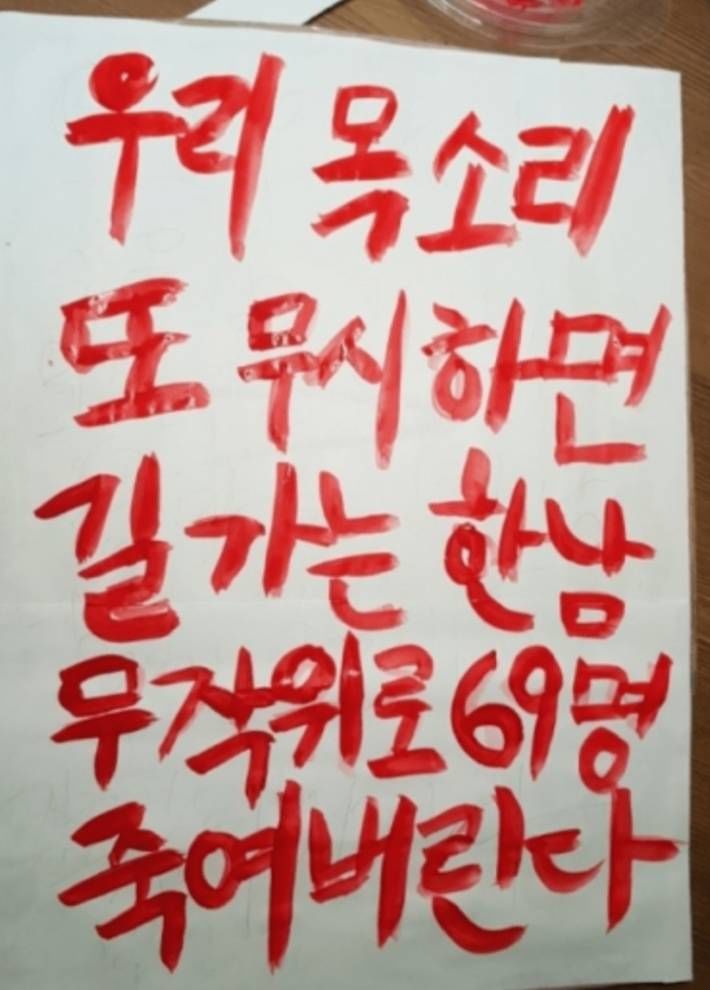 우리 목소리
또 무시하면
길 가는 한남
무작위로 69명
죽여버린다